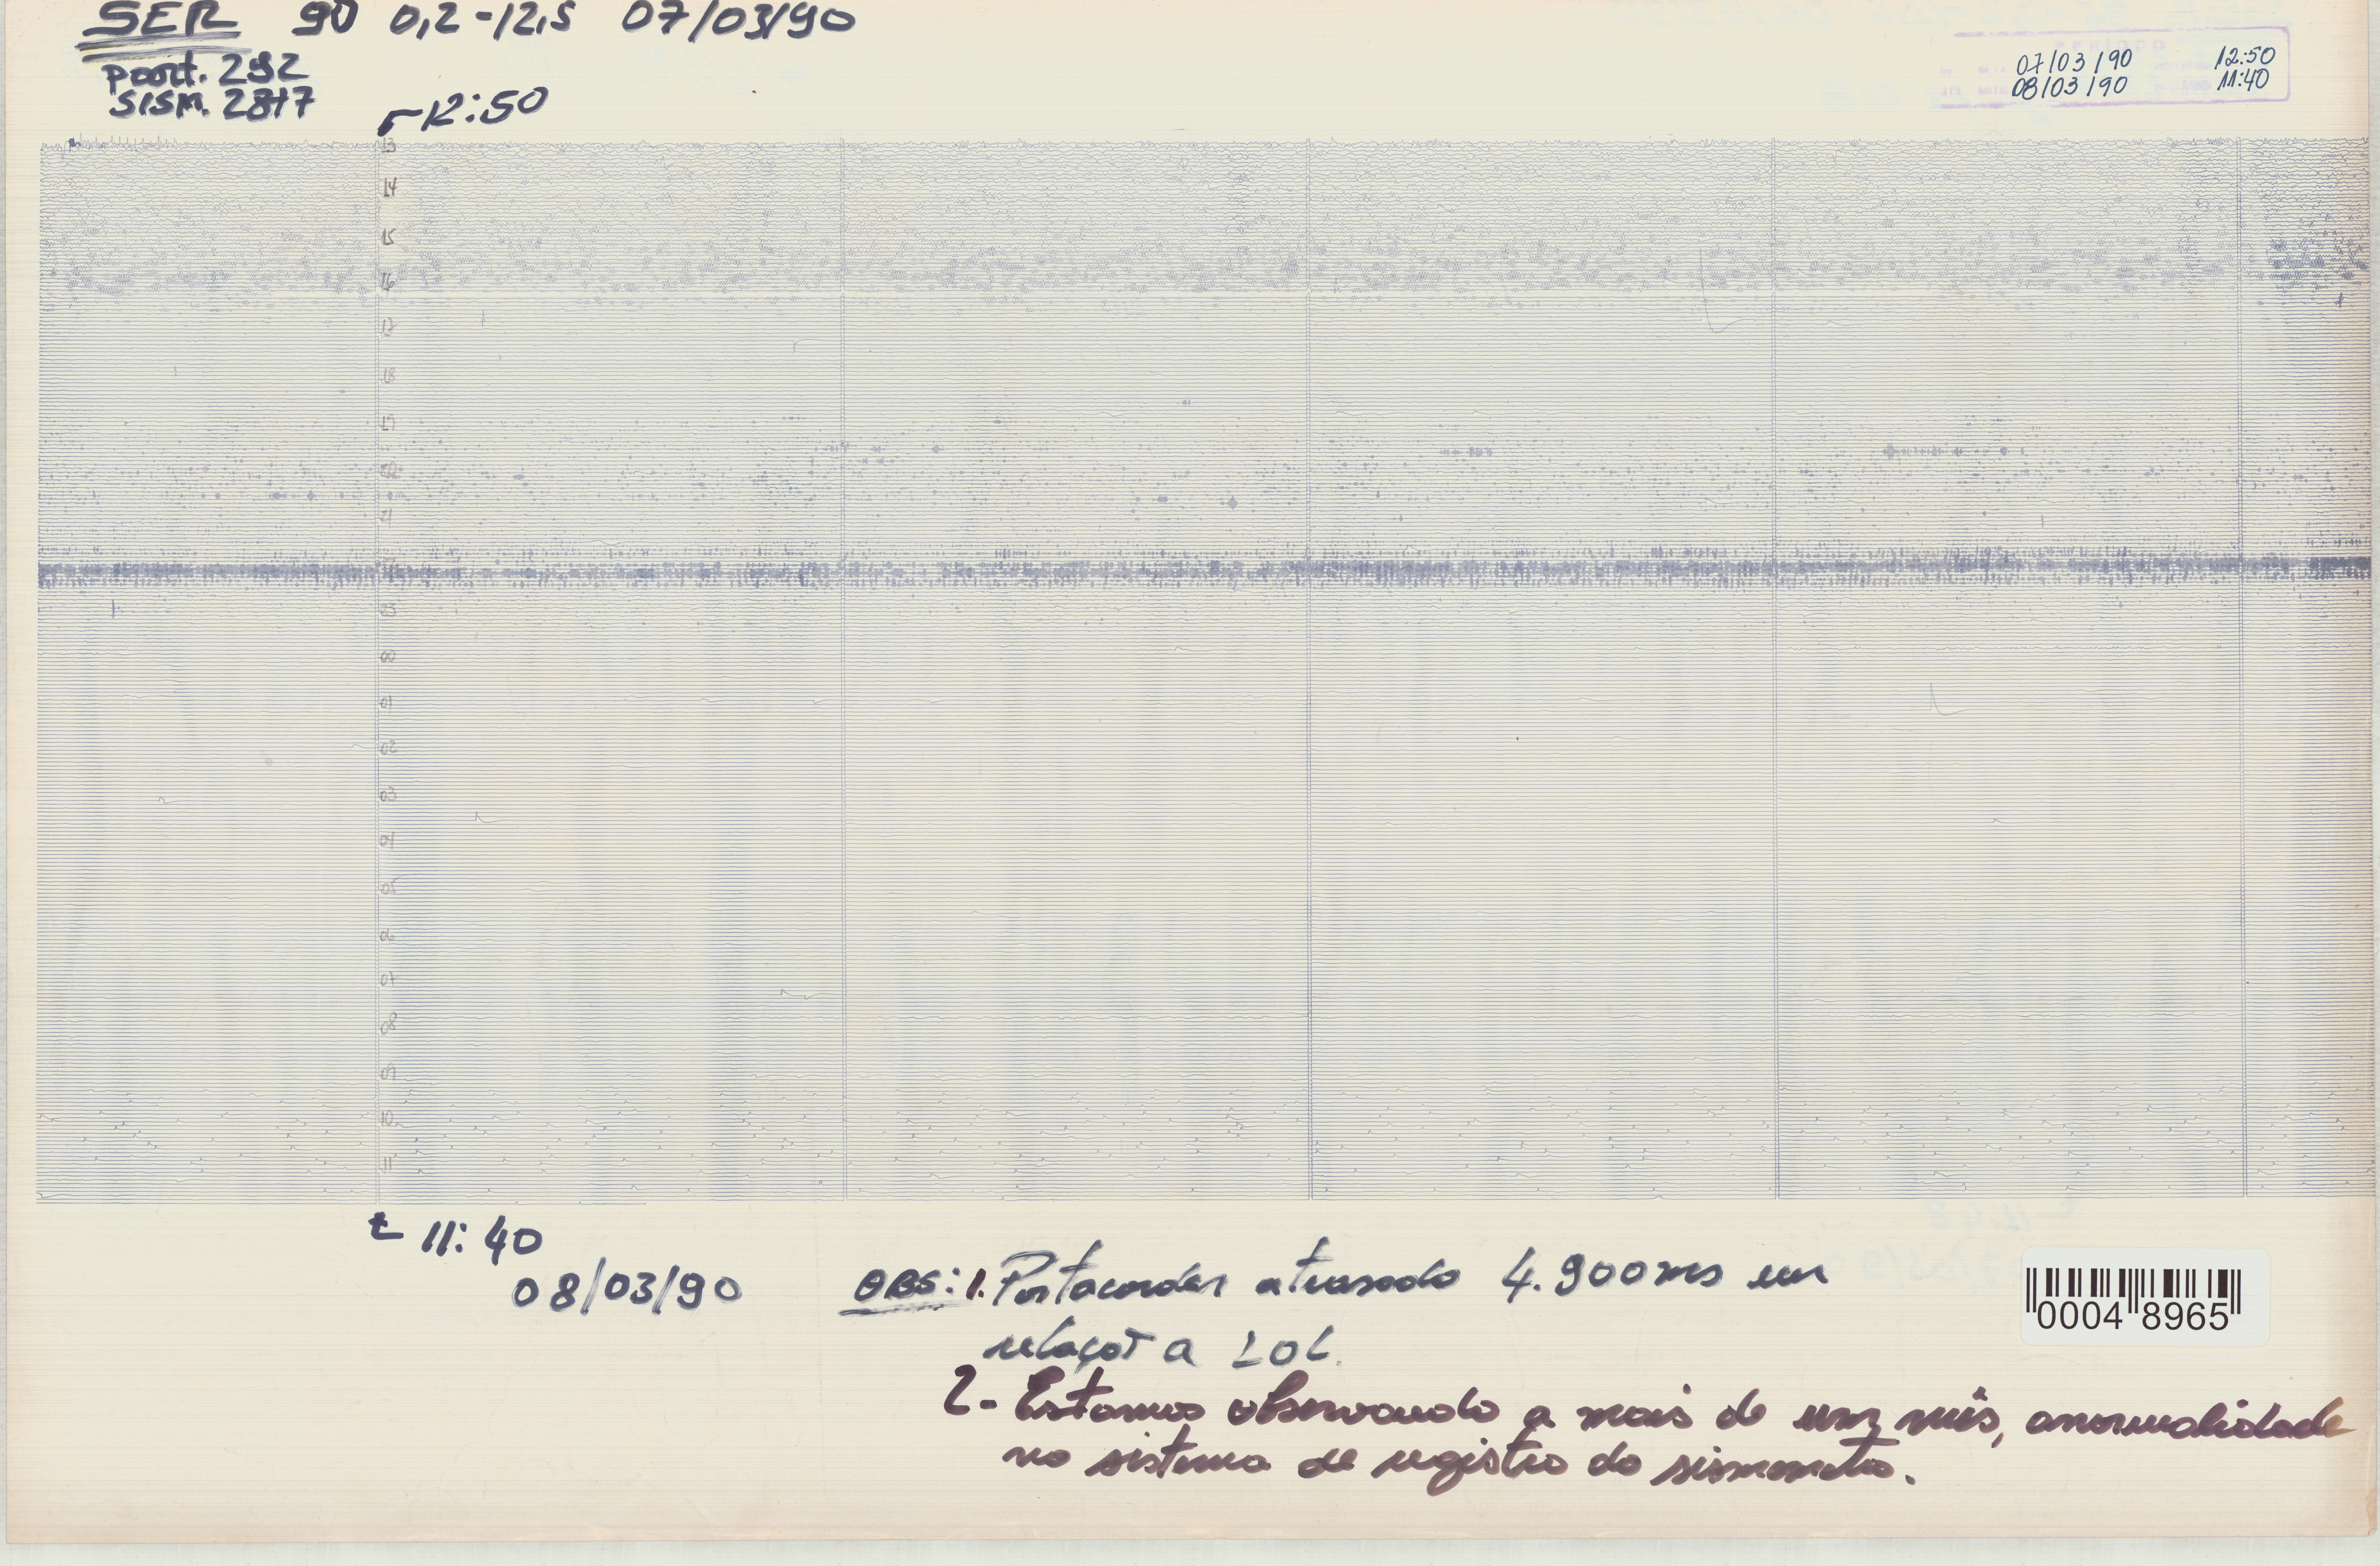 SER 90 0,2-12,5 07/03/90
port. 292
SISM. 2817
12:50
07/03/90 12:50
08/03/90 11:40
13
14
15
16
17
18
19
20
21
23
00
01
02
03
04
05
06
07
08
09
10
11
11:40
08/03/90
OBS: 1. Portacorder atrasado 4.900ms em
relação a LOL.
2- Estamos observando a mais de um mês, anormalidade
no sistema de registro do sismometro.
0004 8965